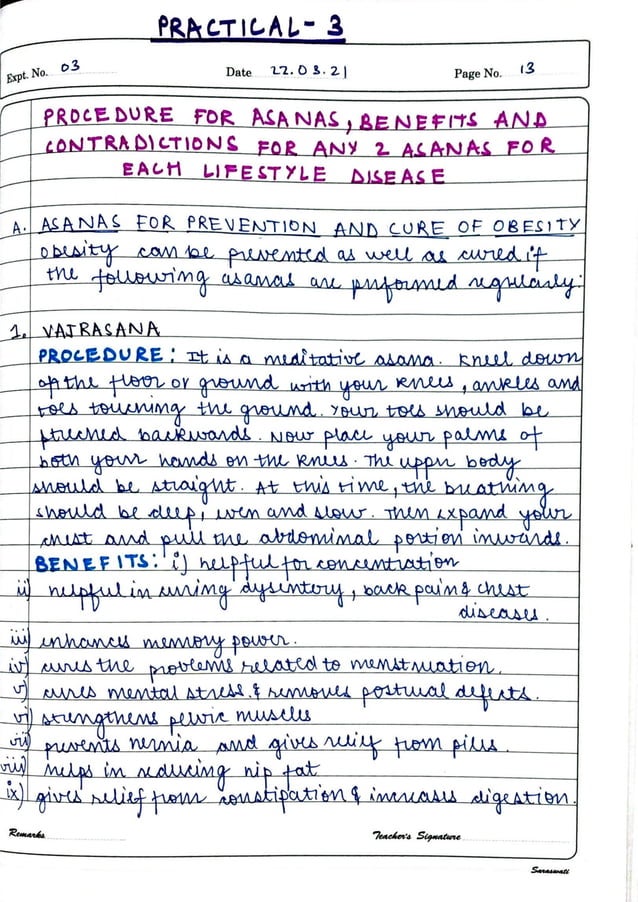 PRACTICAL- 3
Expt. No. 03 Date 22.03.21 Page No. 13
PROCEDURE FOR ASANAS, BENEFITS AND
CONTRADICTIONS FOR ANY 2 ASANAS FOR
EACH LIFESTYLE DISEASE
A. ASANAS FOR PREVENTION AND CURE OF OBESITY
Obesity can be prevented as well as cured if
the following asanas are performed regularly:
1. VAJRASANA
PROCEDURE: It is a meditative asana. Kneel down
on the floor or ground with your knees, ankles and
toes touching the ground. Your toes should be
stretched backwards. Now place your palms of
both your hands on the knees. The upper body
should be straight. At this time, the breathing
should be deep, even and slow. Then expand your
chest and pull the abdominal portion inwards.
BENEFITS: i) helpful for concentration
ii) helpful in curing dysentory, back pain & chest
diseases.
iii) enhances memory power.
iv) cures the problems related to menstruation.
v) cures mental stress. & removes postural defects.
vi) strengthens pelvic muscles
vii) prevents hernia and gives relief from piles.
viii) helps in reducing hip fat
ix) gives relief from constipation & increases digestion.
Remarks Teacher's Signature
Saraswati